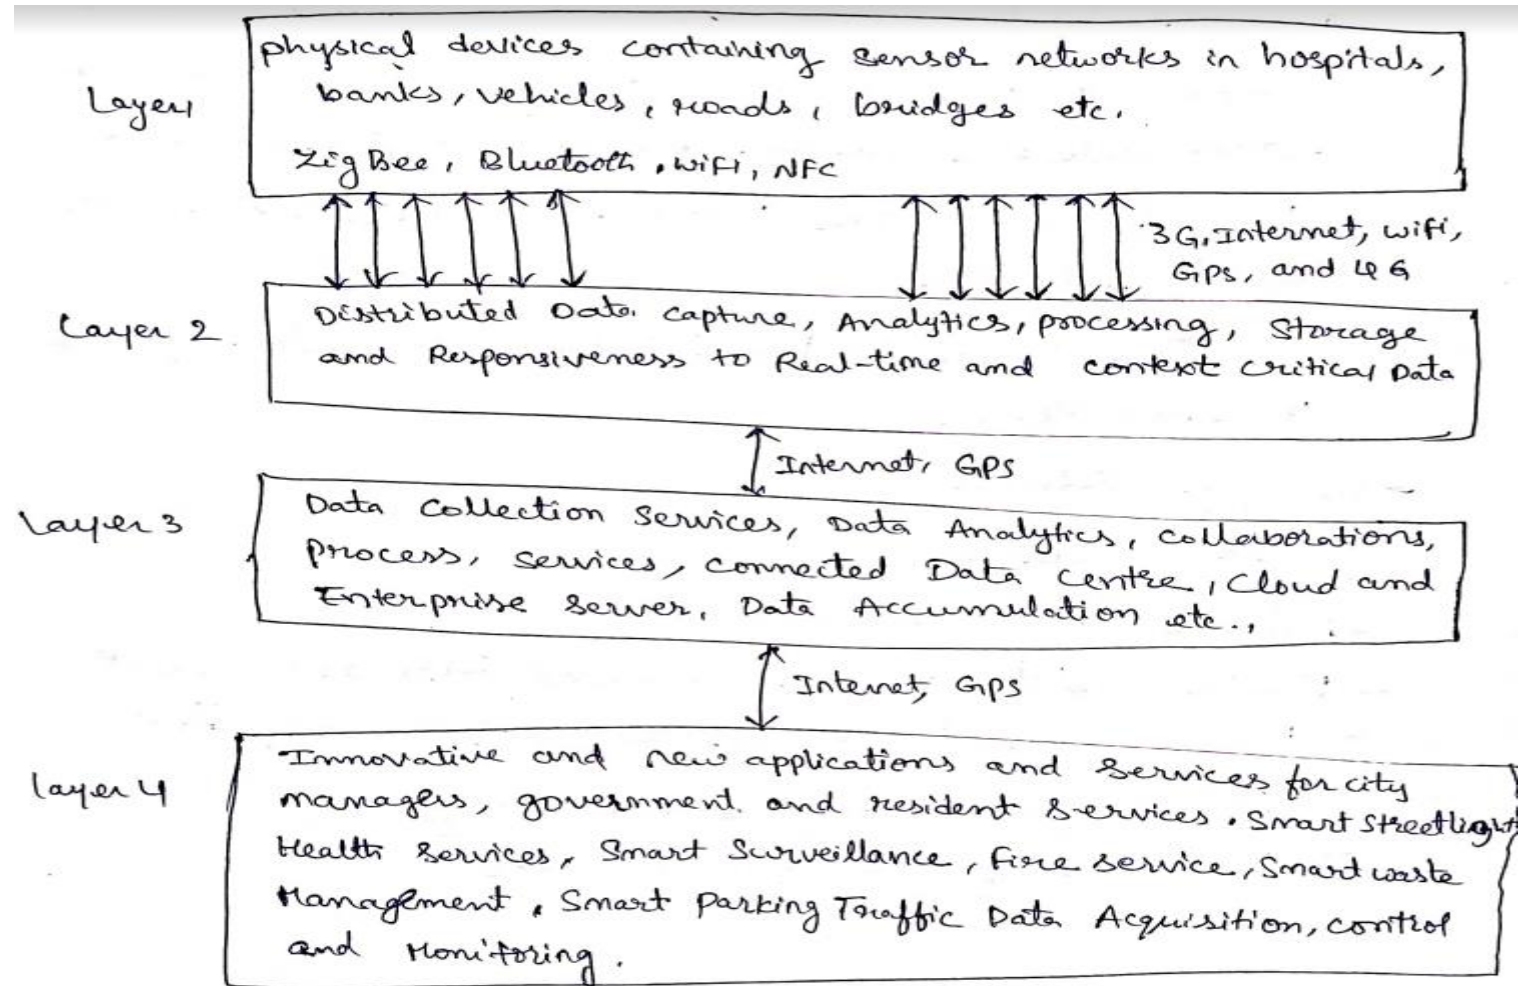 Layer1
physical devices containing sensor networks in hospitals,
banks, vehicles, roads, bridges etc.
ZigBee, Bluetooth, WiFi, NFC
3G, Internet, wifi,
GPS, and 4G
Layer 2
Distributed Data capture, Analytics, processing, Storage
and Responsiveness to Real-time and context critical Data
Internet, GPS
Layer 3
Data Collection Services, Data Analytics, collaborations,
process, services, connected Data centre, Cloud and
Enterprise server, Data Accumulation etc.,
Internet, GPS
layer 4
Innovative and new applications and services for city
managers, government and resident services. Smart Streetlight
Health services, Smart Surveillance, fire service, Smart waste
Management, Smart parking Traffic Data Acquisition, control
and Monitoring.